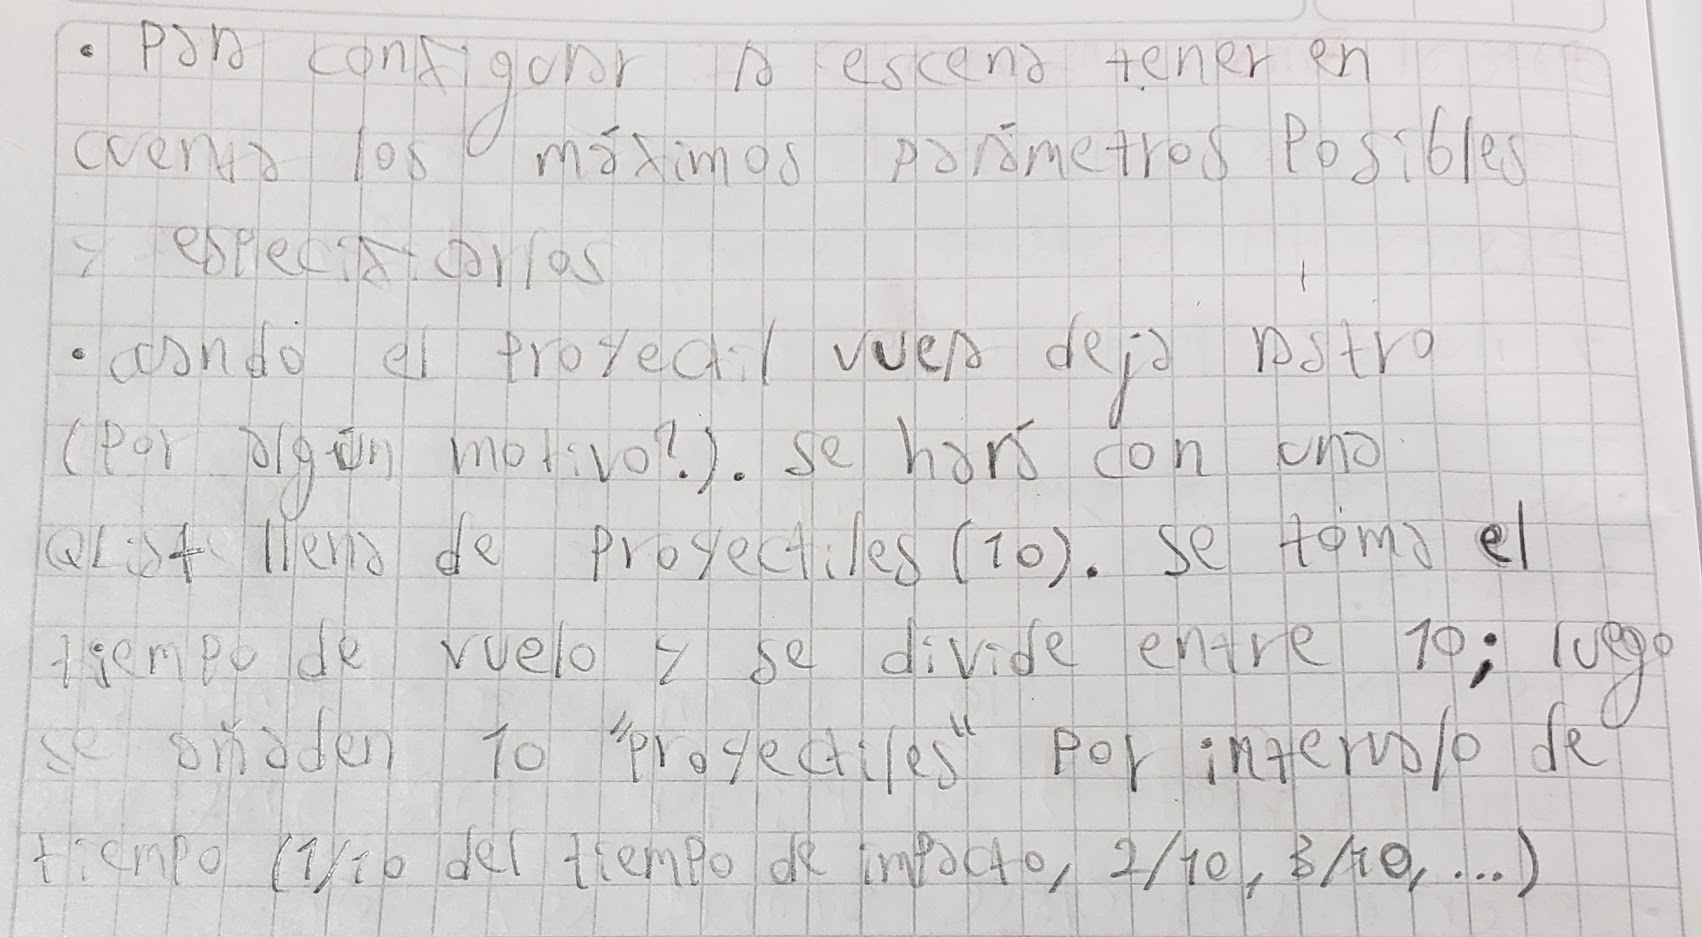 • Para configurar la escena tener en
cuenta los máximos parámetros posibles
y especificarlos
• cuando el proyectil vuela deja rastro
(por algún motivo?). se hará con una
QList llena de proyectiles (10). se toma el
tiempo de vuelo y se divide entre 10; luego
se añaden 10 "proyectiles" por intervalo de
tiempo (1/10 del tiempo de impacto, 2/10, 3/10, ...)